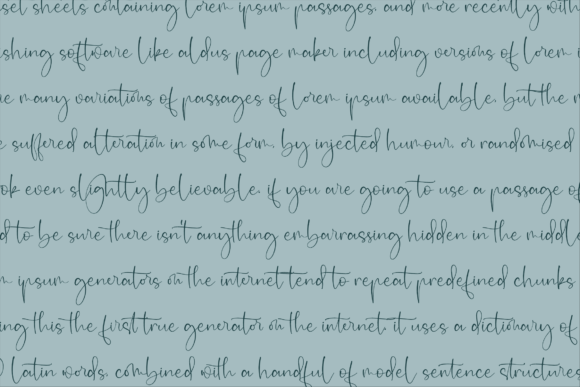 sel sheets containing lorem ipsum passages. and more recently with
shing software like aldus page maker including versions of lorem i
e many variations of passages of lorem ipsum available. but the m
e suffered alteration in some form. by injected humour. or randomised
ok even slightly believable. if you are going to use a passage of
d to be sure there isn't anything embarrassing hidden in the middle
m ipsum generators on the internet tend to repeat predefined chunks
ing this the first true generator on the internet. it uses a dictionary of
0 latin words. combined with a handful of model sentence structures